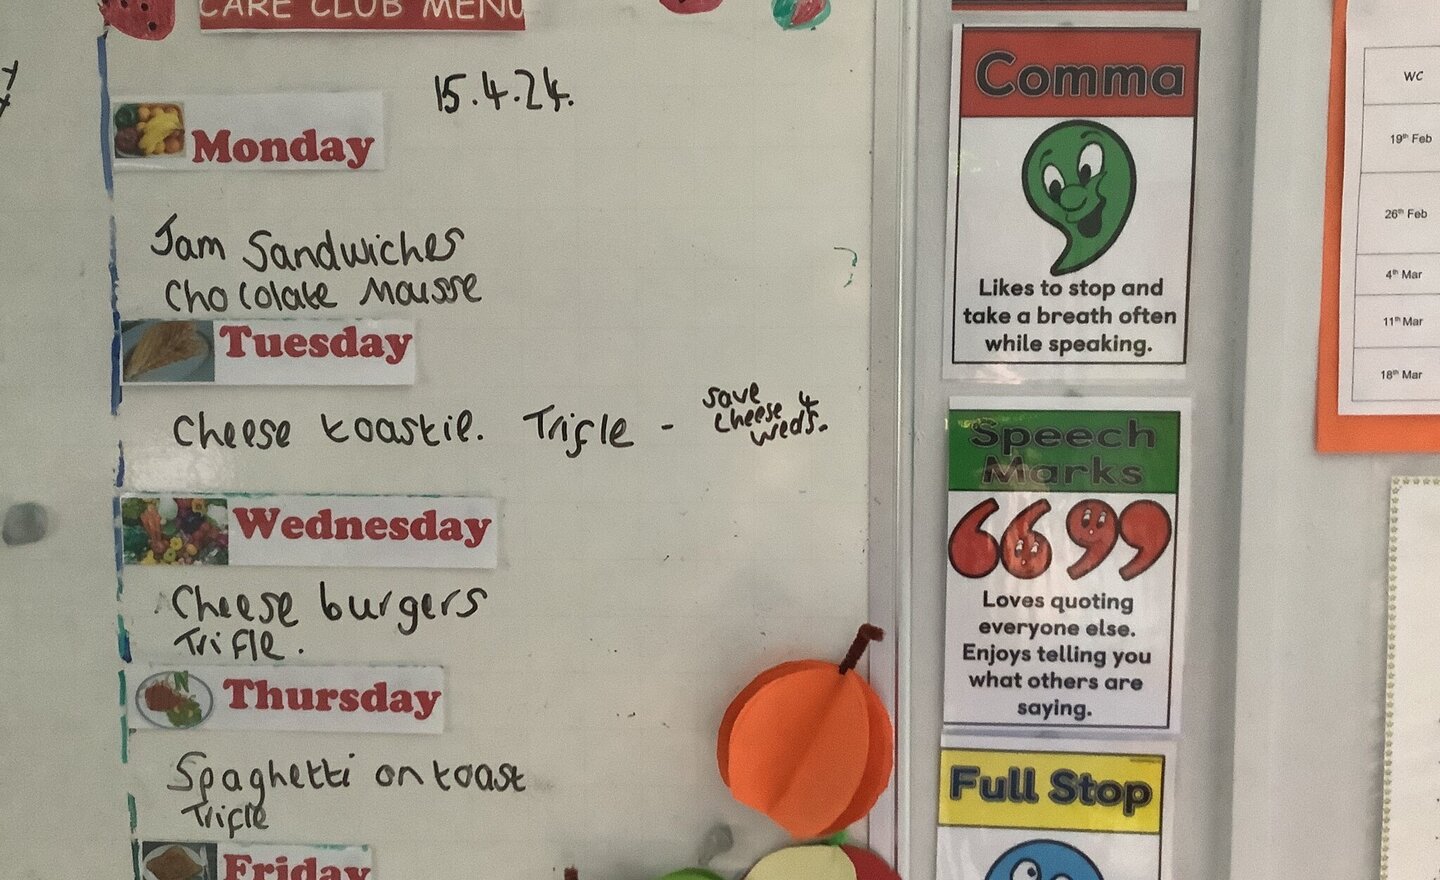 CARE CLUB MENU
15.4.24.
Monday
Jam Sandwiches
Chocolate Mousse
Tuesday
Cheese toastie. Trifle - save
cheese 4
weds.
Wednesday
Cheese burgers
Trifle.
Thursday
Spaghetti on toast
Trifle
Friday
Comma
Likes to stop and
take a breath often
while speaking.
Speech
Marks
Loves quoting
everyone else.
Enjoys telling you
what others are
saying.
Full Stop
WC
19th Feb
26th Feb
4th Mar
11th Mar
18th Mar